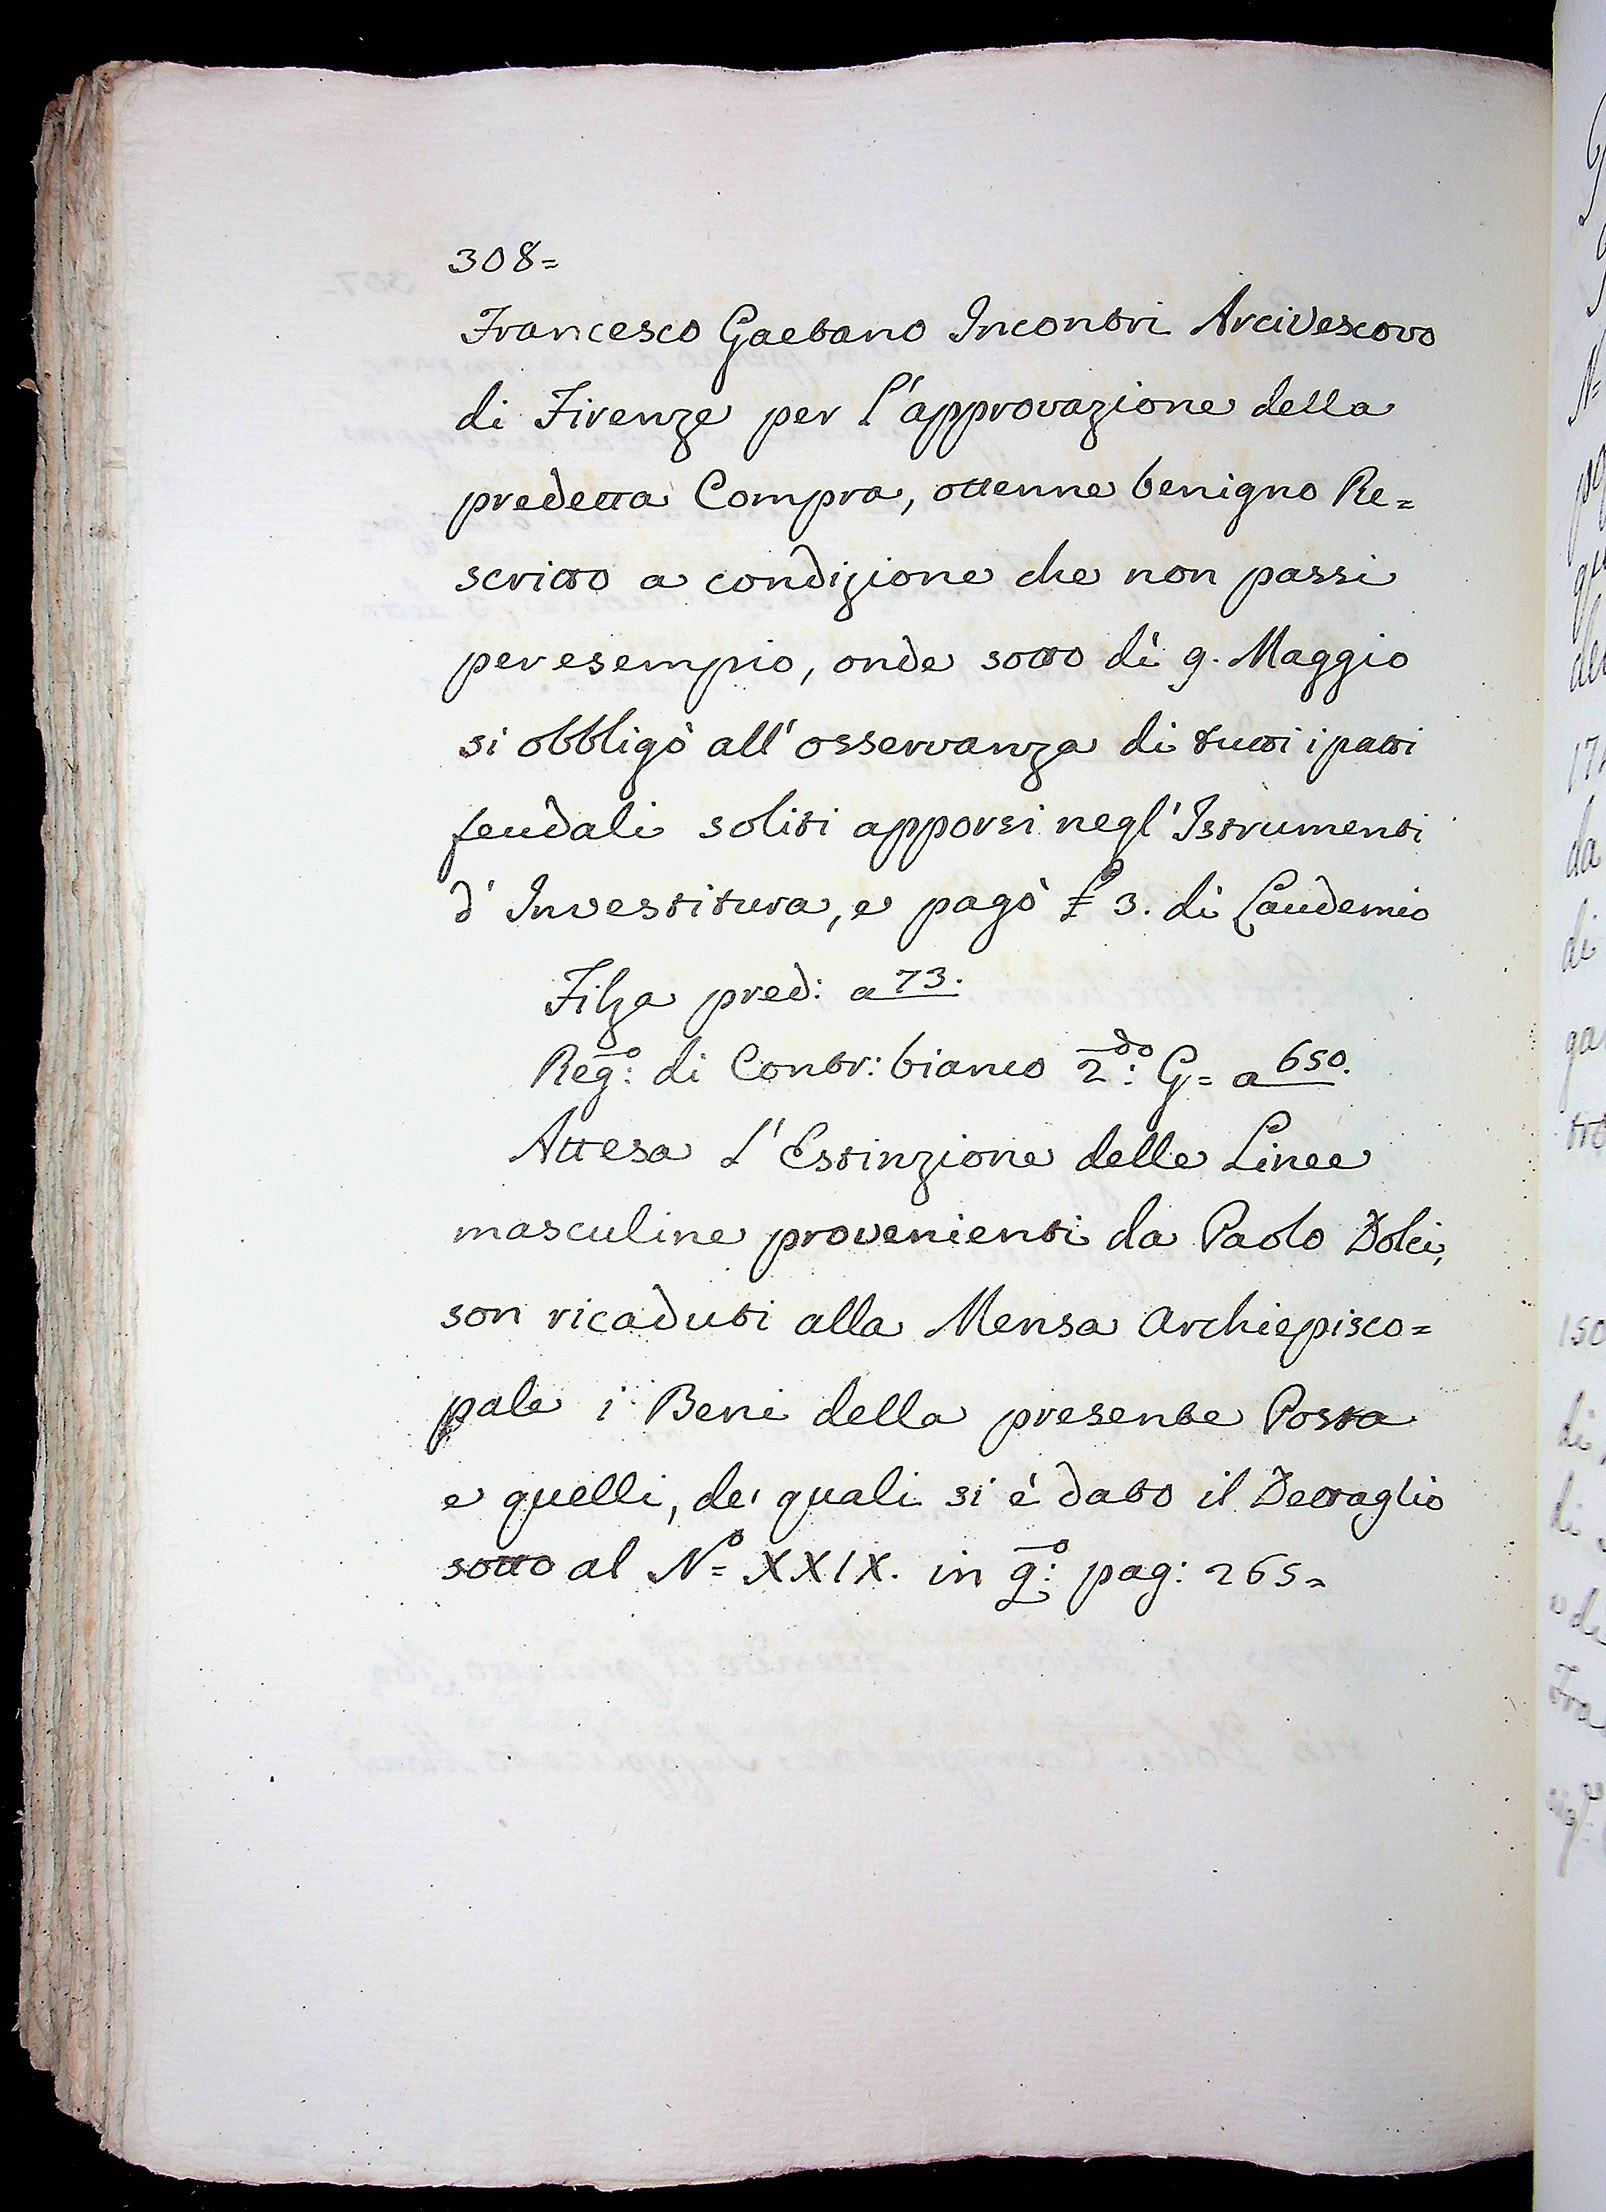 308=
Francesco Gaetano Incontri Arcivescovo
di Firenze per l'approvazione della
predetta Compra, ottenne benigno Re=
scritto a condizione che non passi
per esempio, onde sotto dì 9. Maggio
si obbligò all'osservanza di tutti i patti
feudali soliti apporsi negl'Istrumenti
d'Investitura, e pagò £ 3. di Laudemio
Filza pred: a 73.
Reg:o di Contr: bianco 2:do G= a 650.
Attesa l'Estinzione delle Linee
masculine provenienti da Paolo Dolci,
son ricaduti alla Mensa Archiepisco=
pale i Beni della presente Posta
e quelli, de' quali si è dato il Dettaglio
sotto al N.o XXIX. in q:o pag: 265=